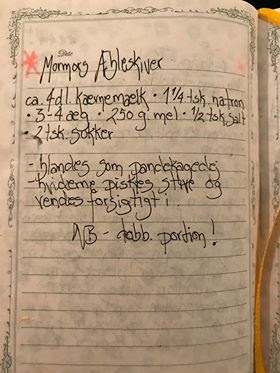 Date
Mormors Æbleskiver
ca. 4 dl. kærnemælk · 1 1/4 tsk. natron
· 3-4 æg · 250 g. mel · 1/2 tsk. salt
· 2 tsk. sukker
- blandes som pandekagedej
- hviderne piskes stive og
vendes forsigtigt i.
NB - dobb. portion!